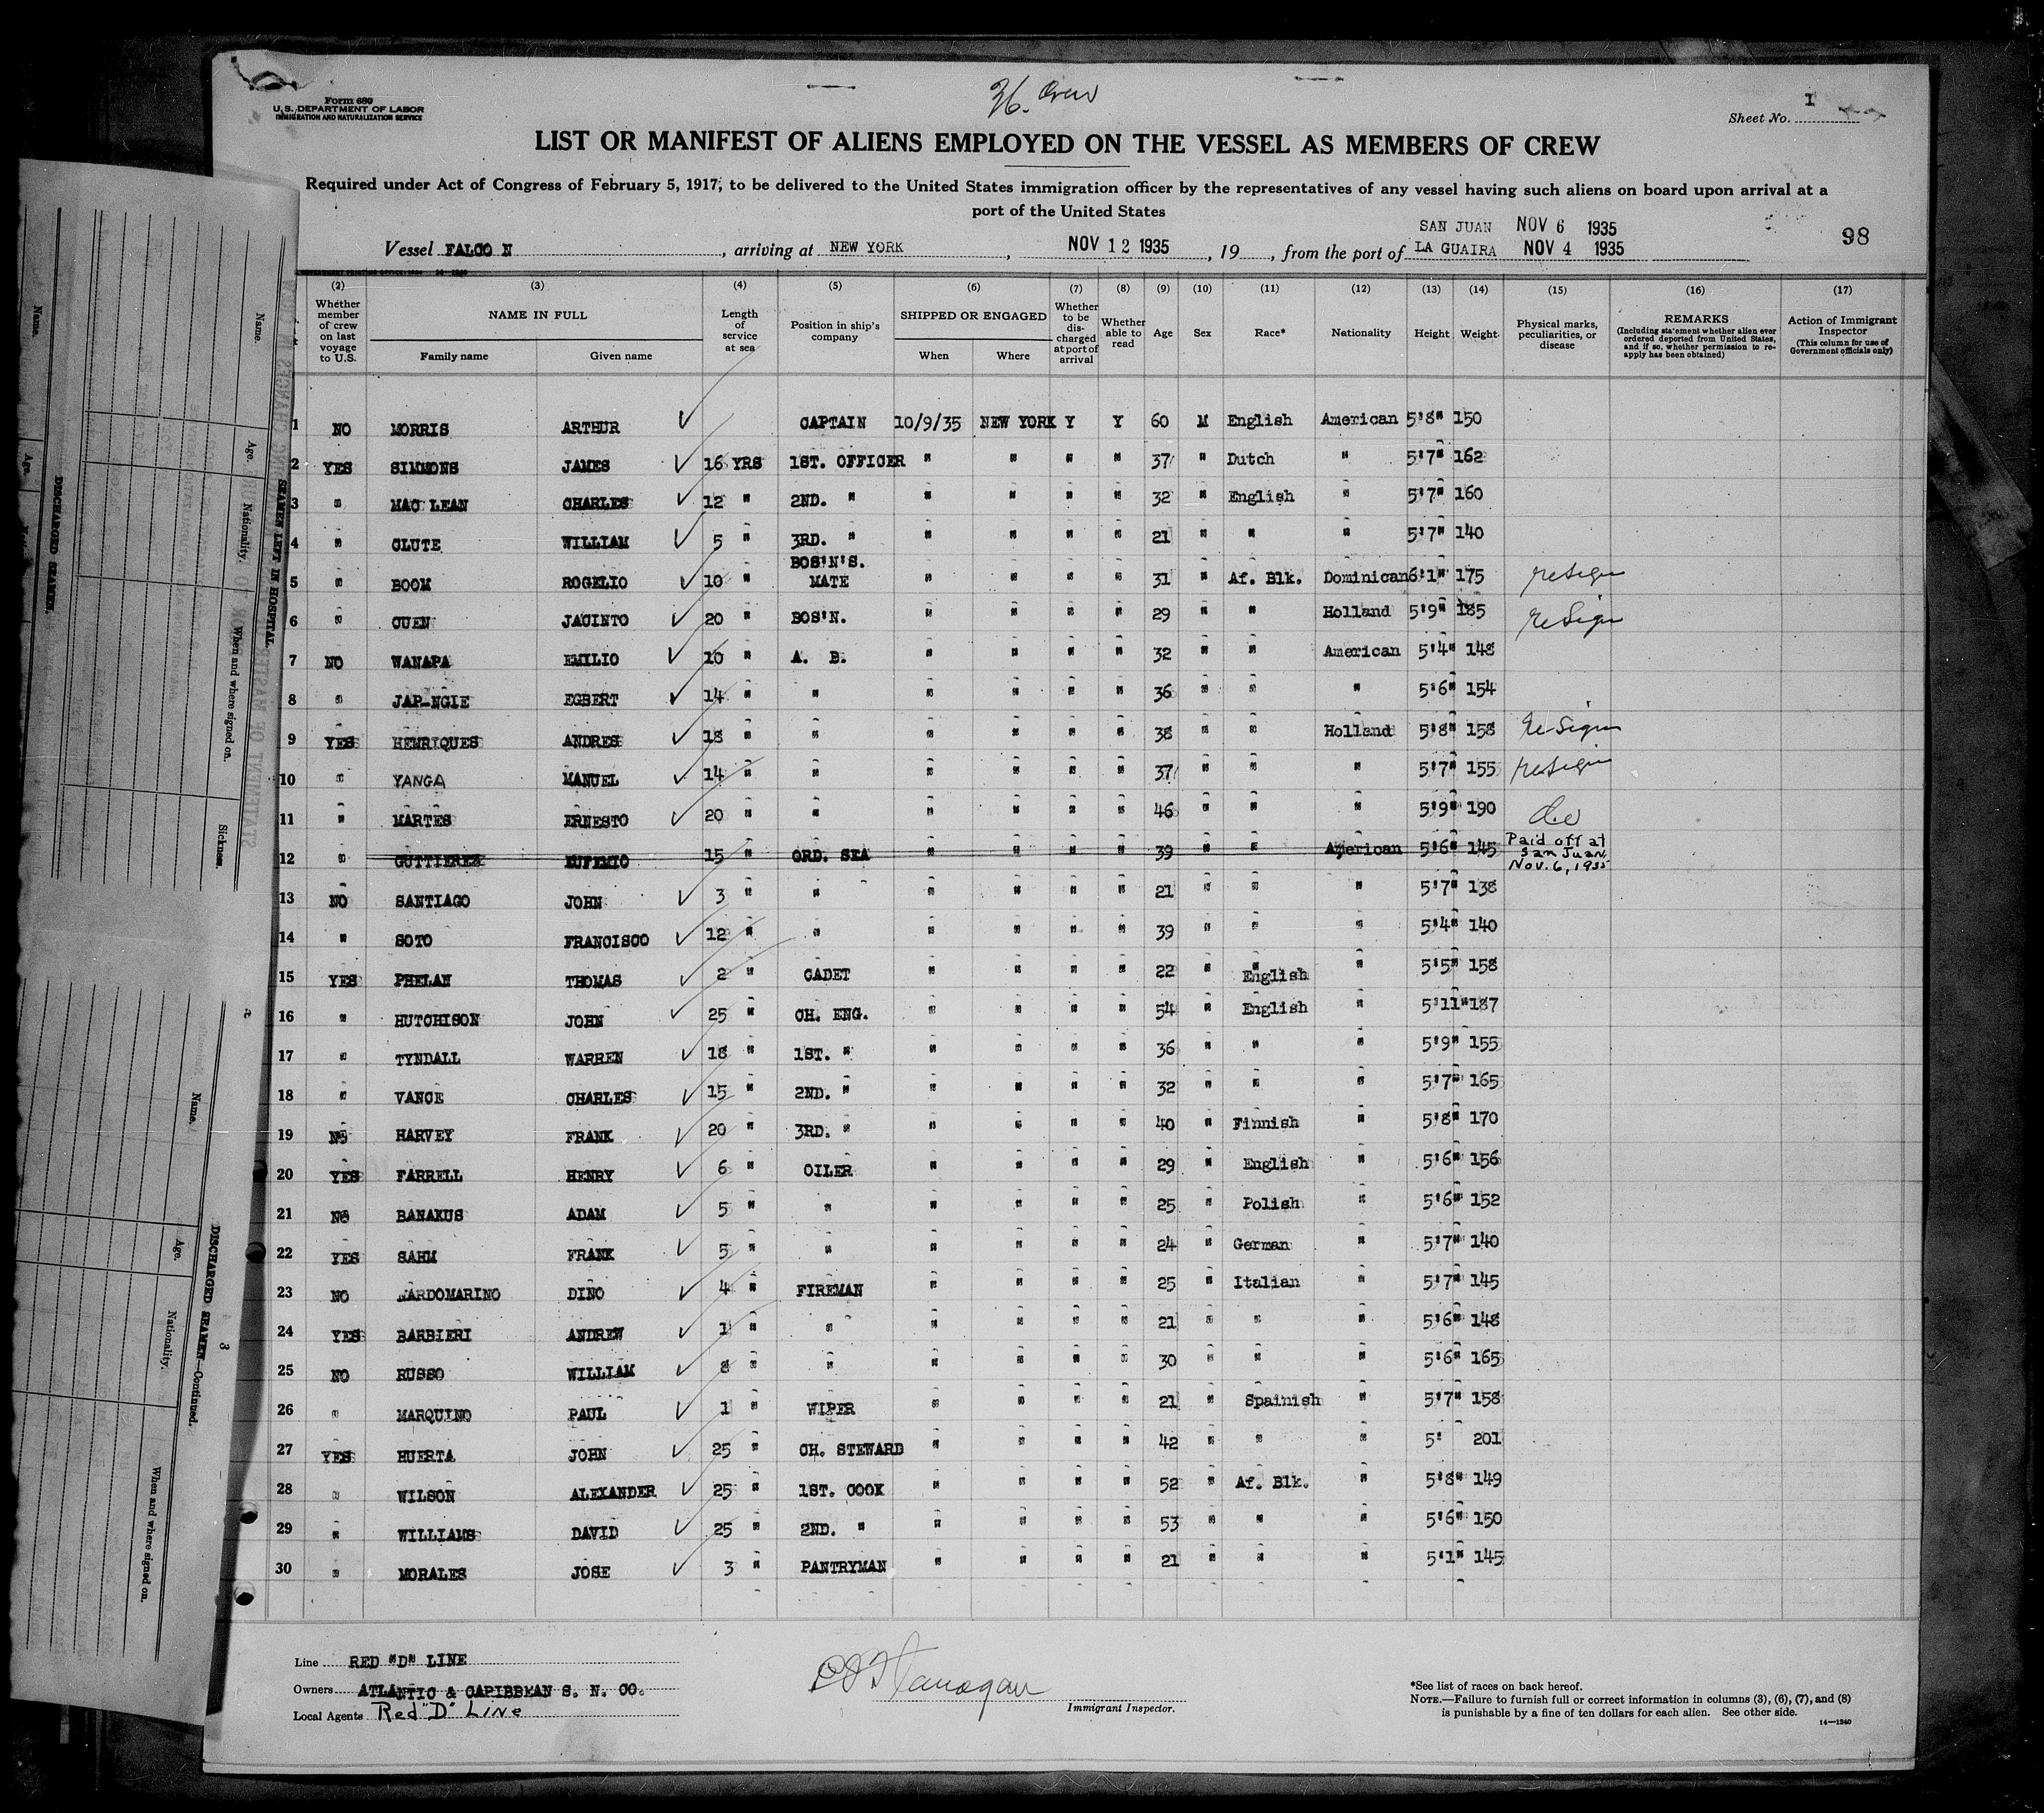 Form 680
U. S. DEPARTMENT OF LABOR
IMMIGRATION AND NATURALIZATION SERVICE
36. Crew
Sheet No. 1
LIST OR MANIFEST OF ALIENS EMPLOYED ON THE VESSEL AS MEMBERS OF CREW
Required under Act of Congress of February 5, 1917, to be delivered to the United States immigration officer by the representatives of any vessel having such aliens on board upon arrival at a
port of the United States
SAN JUAN NOV 6 1935
Vessel FALCO N, arriving at NEW YORK, NOV 12 1935, 19, from the port of LA GUAIRA NOV 4 1935
98
(2) (3) (4) (5) (6) (7) (8) (9) (10) (11) (12) (13) (14) (15) (16) (17)
Whether member of crew on last voyage to U.S. NAME IN FULL Family name Given name Length of service at sea Position in ship's company SHIPPED OR ENGAGED When Where Whether to be discharged at port of arrival Whether able to read Age Sex Race* Nationality Height Weight Physical marks, peculiarities, or disease REMARKS (Including statement whether alien ever ordered deported from United States, and if so, whether permission to reapply has been obtained) Action of Immigrant Inspector (This column for use of Government officials only)
1 NO MORRIS ARTHUR CAPTAIN 10/9/35 NEW YORK Y Y 60 M English American 5'8" 150
2 YES SIMMONS JAMES 16 YRS 1ST. OFFICER " " " " 37 " Dutch " 5'7" 162
3 " MAC LEAN CHARLES 12 " 2ND. " " " " " 32 " English " 5'7" 160
4 " CLUTE WILLIAM 5 " 3RD. " " " " " 21 " " " 5'7" 140
5 " BOOM ROGELIO 10 " BOS'N'S. MATE " " " " 31 " Af. Blk. Dominican 6'1" 175 resign
6 " CUEN JACINTO 20 " BOS'N. " " " " 29 " " Holland 5'9" 185 resign
7 NO WANAPA EMILIO 10 " A. B. " " " " 32 " " American 5'4" 148
8 " JAP-NGIE EGBERT 14 " " " " " " 36 " " " 5'6" 154
9 YES HENRIQUES ANDRES 18 " " " " " " 38 " " Holland 5'8" 158 resign
10 " YANGA MANUEL 14 " " " " " " 37 " " " 5'7" 155 resign
11 " MARTES ERNESTO 20 " " " " " " 46 " " " 5'9" 190 do
12 " GUTTIEREZ EUFEMIO 15 " ORD. SEA " " " " 39 " " American 5'6" 145 Paid off at San Juan, Nov. 6, 1935
13 NO SANTIAGO JOHN 3 " " " " " " 21 " " " 5'7" 138
14 " SOTO FRANCISCO 12 " " " " " " 39 " " " 5'4" 140
15 YES PHELAN THOMAS 2 " CADET " " " " 22 " English " 5'5" 158
16 " HUTCHISON JOHN 25 " CH. ENG. " " " " 54 " English " 5'11" 187
17 " TYNDALL WARREN 18 " 1ST. " " " " " 36 " " " 5'9" 155
18 " VANCE CHARLES 15 " 2ND. " " " " " 32 " " " 5'7" 165
19 NO HARVEY FRANK 20 " 3RD. " " " " " 40 " Finnish " 5'8" 170
20 YES FARRELL HENRY 6 " OILER " " " " 29 " English " 5'6" 156
21 NO BANAKUS ADAM 5 " " " " " " 25 " Polish " 5'6" 152
22 YES SAHM FRANK 5 " " " " " " 24 " German " 5'7" 140
23 NO NARDOMARINO DINO 4 " FIREMAN " " " " 25 " Italian " 5'7" 145
24 YES BARBIERI ANDREW 1 " " " " " " 21 " " " 5'6" 148
25 NO RUSSO WILLIAM 8 " " " " " " 30 " " " 5'6" 165
26 " MARQUINO PAUL 1 " WIPER " " " " 21 " Spainish " 5'7" 158
27 YES HUERTA JOHN 25 " CH. STEWARD " " " " 42 " " " 5' 201
28 " WILSON ALEXANDER 25 " 1ST. COOK " " " " 52 " Af. Blk. " 5'8" 149
29 " WILLIAMS DAVID 25 " 2ND. " " " " " 53 " " " 5'6" 150
30 " MORALES JOSE 3 " PANTRYMAN " " " " 21 " " " 5'1" 145
Line RED "D" LINE
Owners ATLANTIC & CARIBBEAN S. N. CO.
Local Agents Red "D" Line
Flanagan
Immigrant Inspector.
*See list of races on back hereof.
NOTE.—Failure to furnish full or correct information in columns (3), (6), (7), and (8)
is punishable by a fine of ten dollars for each alien. See other side.
14—1240
Name.
Age.
DISCHARGED SEAMEN.
Name.
Age.
Nationality.
When and where signed on.
Sickness.
SEAMEN LEFT IN HOSPITAL.
STATEMENT OF MASTER
Name.
Age.
Nationality.
When and where signed on.
DISCHARGED SEAMEN—Continued.
3